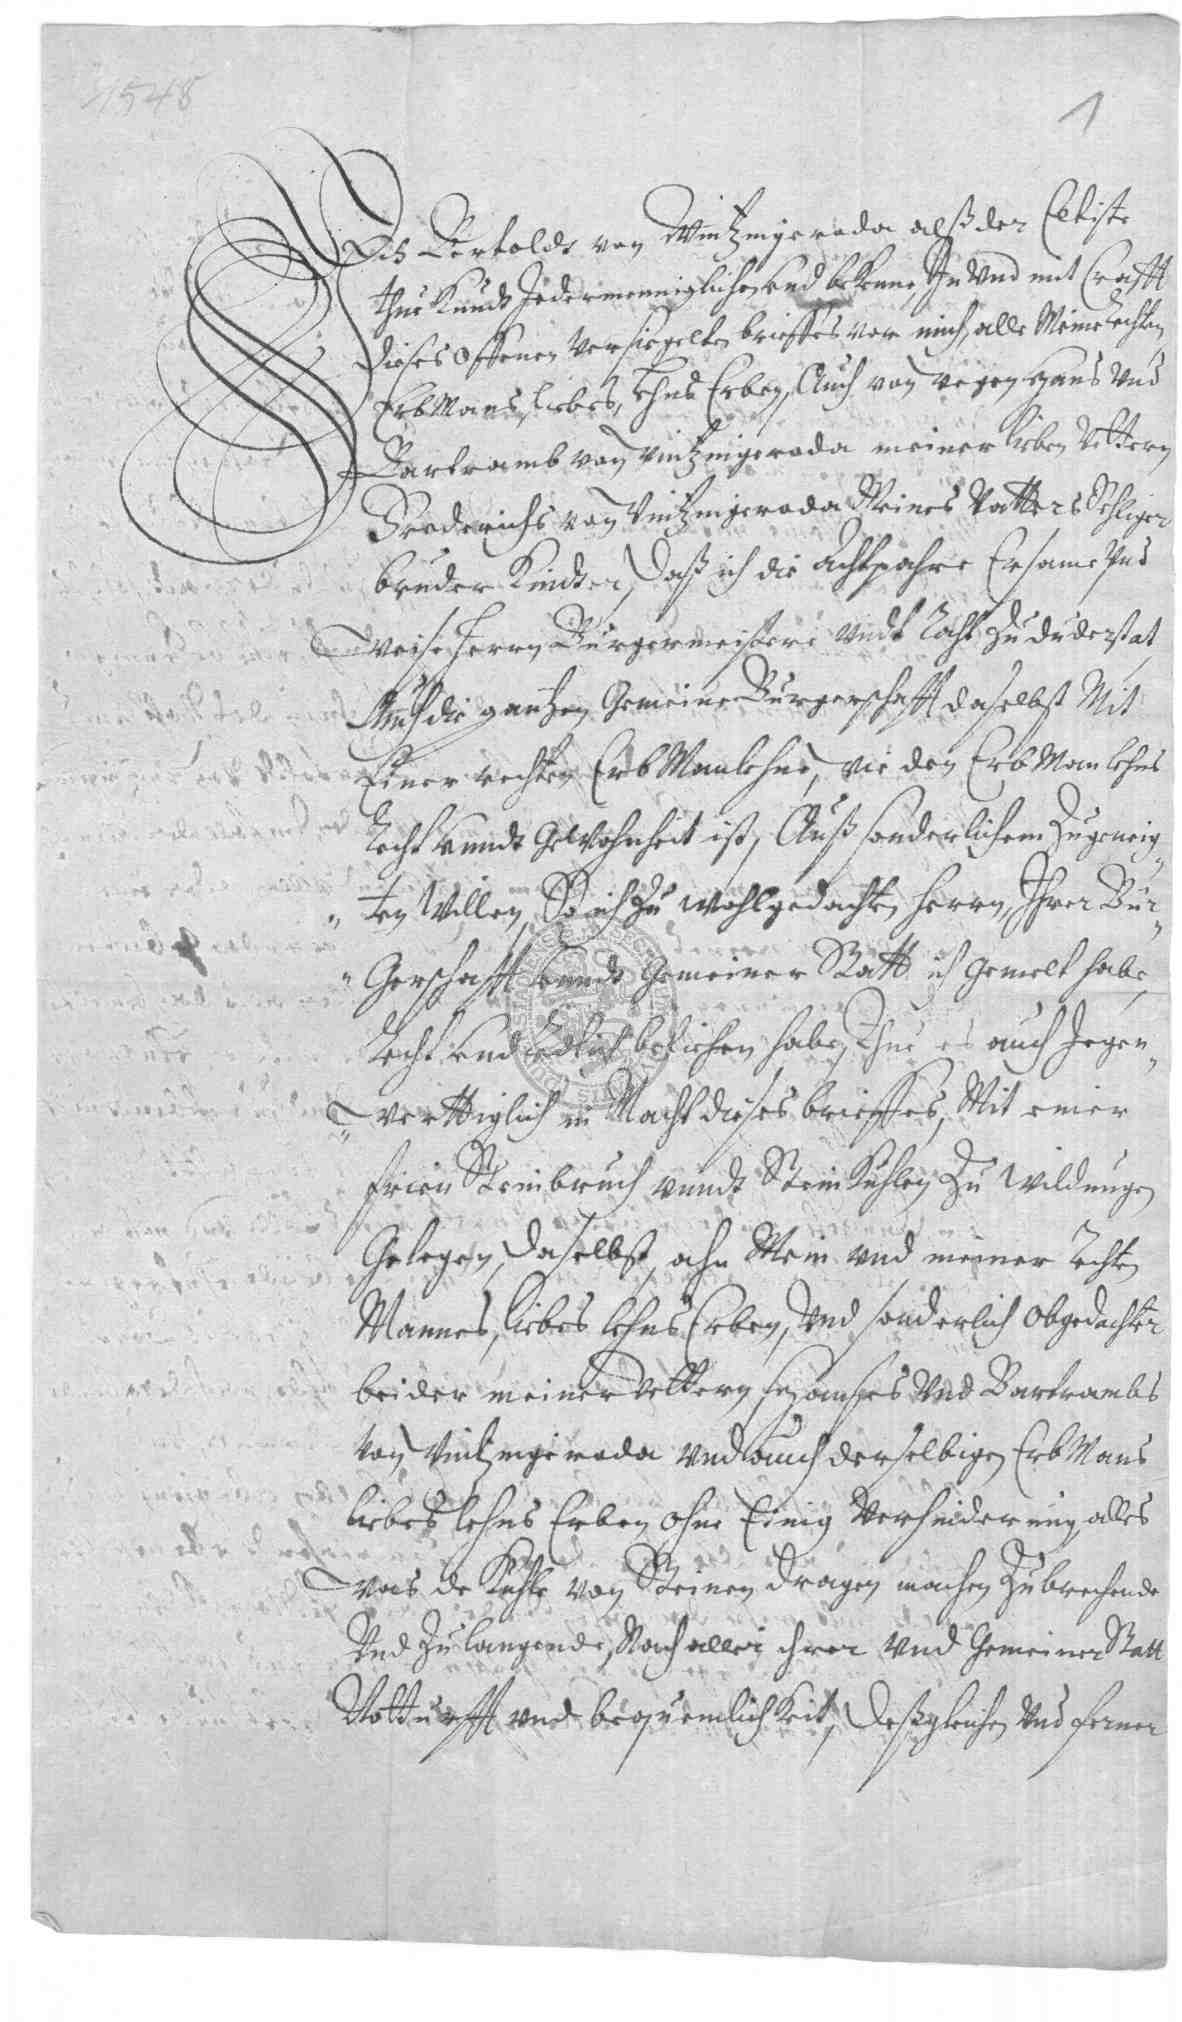 1548
1
Ich Bertoldt von Wintzingeroda alß der Eltiste
thue Kundt Jedermenniglichen und bekenne, In Und mit Crafft
dieses offenen Versiegelten brieffes vor mich, alle Meine Rechten
Erb Mans, liebes, lehns Erben, Auch von wegen Hans Und
Bartramb von Wintzingeroda meiner lieben Vettern
Froderichs von Wintzingeroda Meines Vatters Sehliger
bruder Kinder, Daß ich die Achtpahre Ersame Und
weise Herrn Bürgermeistere Undt Raht Zu duderstat
Auch die gantzen Gemeine Burgerschafft daselbst Mit
Einer rechten Erb Manlehne, wie den Erb Man lehns
Recht unndt Gewohnheit ist, Auß sonderlichem Zugeneig„
„ten Willen, So ich Zu wohlgedachten Herrn, Ihrer Bür„
„Gerschafft unndt Gemeiner Statt ich gemelt habe,
Recht und Redlich beliehen habe, Thue es auch Jegen„
„wertiglich in Macht dieses brieffes, Mit einer
freien Steinbruch unndt Stein Kuhlen Zu Wildungen
Gelegen, daselbst, ahn Mein und meiner Rechten
Mannes, liebes lehns Erben, Und sonderlich obgedachter
beider meiner Vettern, Hanses Und Bartrambs
von Wintzingeroda und auch derselbigen Erb Mans
liebes lehns Erben ohne Einig Verhinderung, alles
was de Kuhle von Steinen dragen machen Zubrechende
Und Zulangende, Nach aller ihrer und Gemeiner Statt
Notturfft und bequemlichkeit, Deßgleichen Und ferner